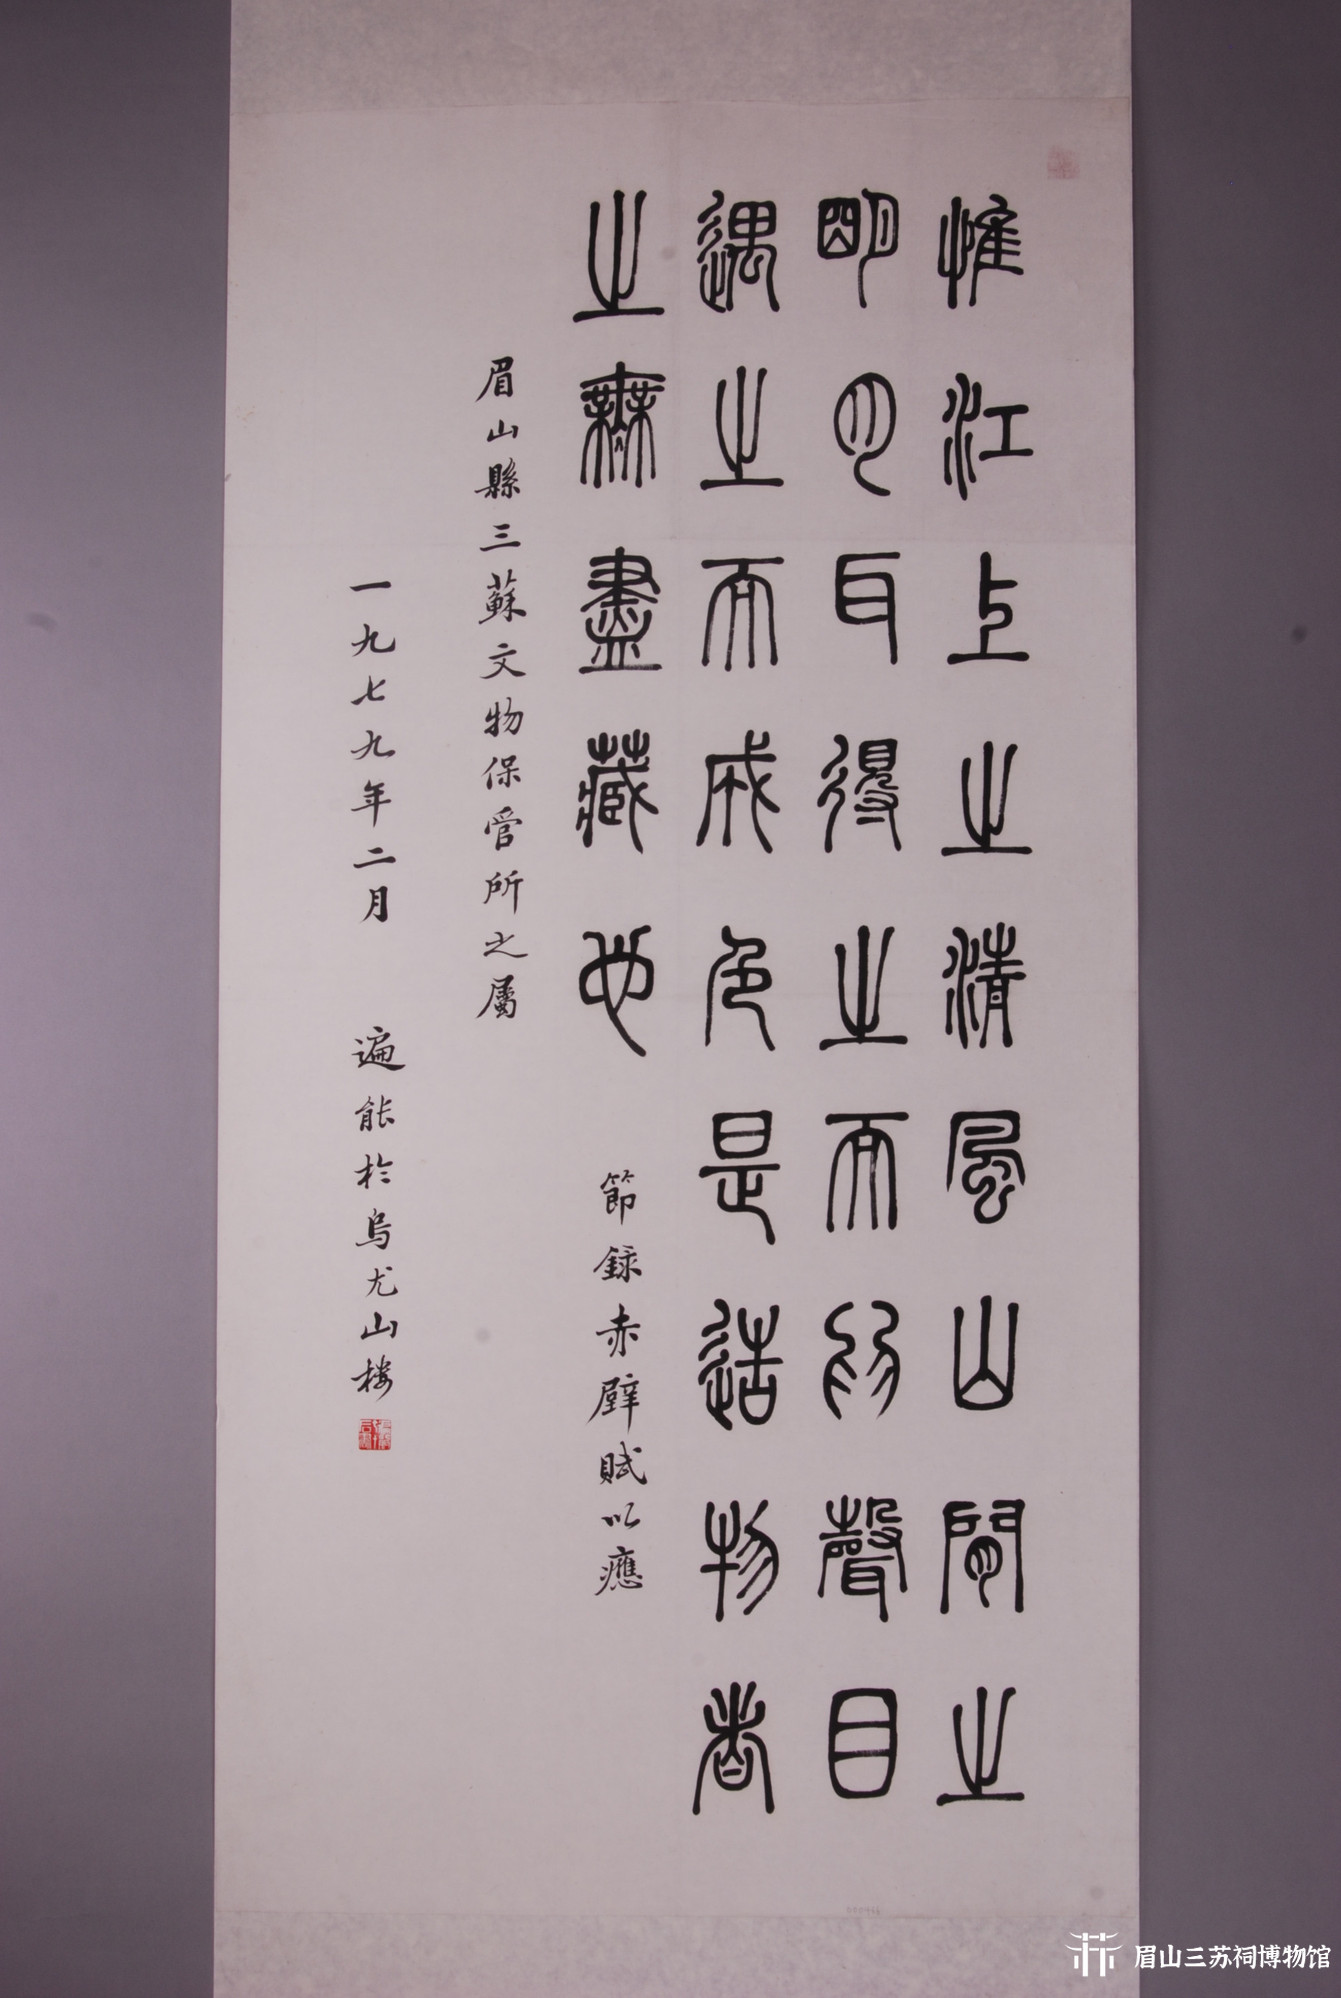 惟江上之清風山間之
明月耳得之而為聲目
遇之而成色是造物者
之無盡藏也
節録赤壁賦以應
眉山縣三蘇文物保管所之屬
一九七九年二月 遍能於烏尤山楼
眉山三苏祠博物馆